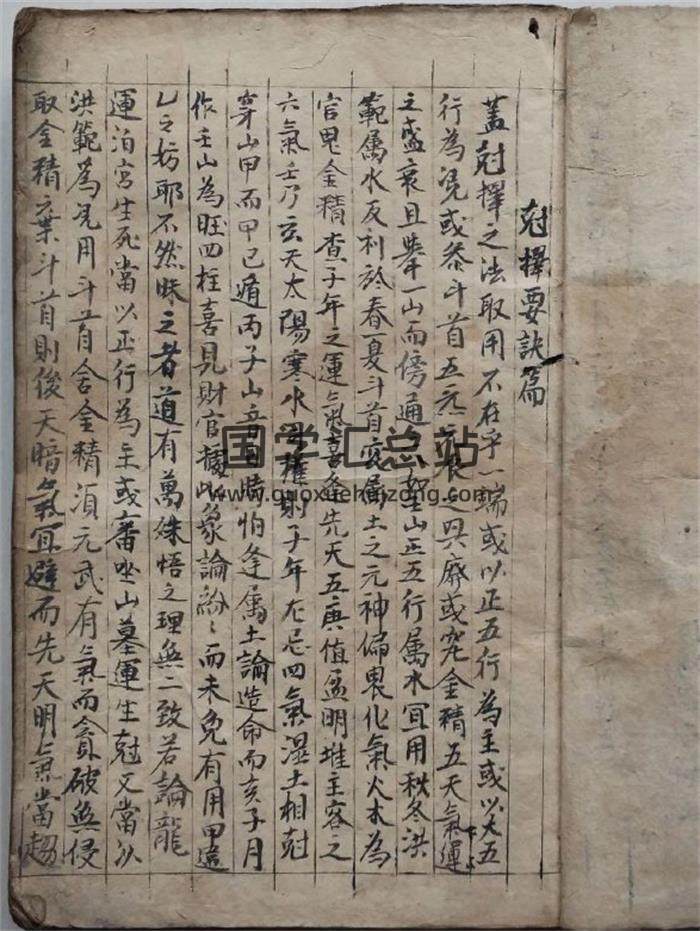 尅擇要訣篇
蓋尅擇之法取用不在乎一端或以正五行為主或以大五
行為凭或叅斗首五元衰之興廢或究金精五天氣運
之盛衰且舉一山而傍通八壬山正五行属水宜用秋冬洪
範属水反利於春夏斗首変属土之元神偏畏化氣火木為
官鬼金精查子年之運氣喜逢先天五庚值孟明堆主客之
六氣壬乃玄天太陽寒水司權則子年忌四氣湿土相尅
穿山甲而甲己遁丙子山音畏怕逢属土論造命而亥子月
作壬山為旺四柱喜見財官據此象論紛〻而未免有用甲違
乙之妨耶不然昧之者道有萬殊悟之理無二致若論龍
運泊宮生死當以正行為主或審坐山墓運生尅又當以
洪範為凭用斗首舍金精須元武有氣而貪破無侵
取金精棄斗首則後天暗氣宜避而先天明氣當趨
国学汇总站
www.guoxuehuizong.com